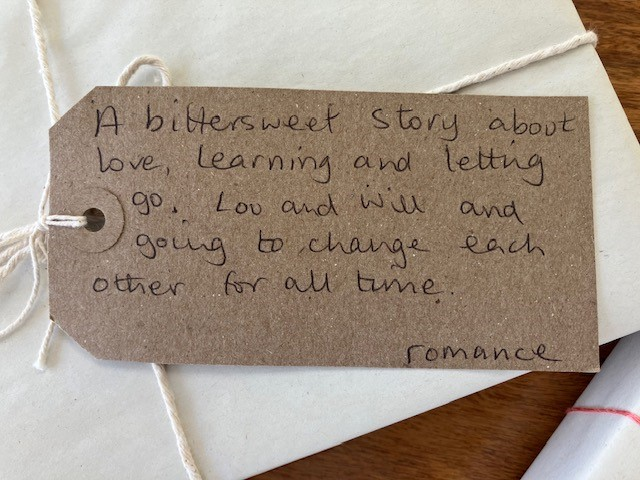 A bittersweet story about
love, learning and letting
go. Lou and Will and
going to change each
other for all time.
romance